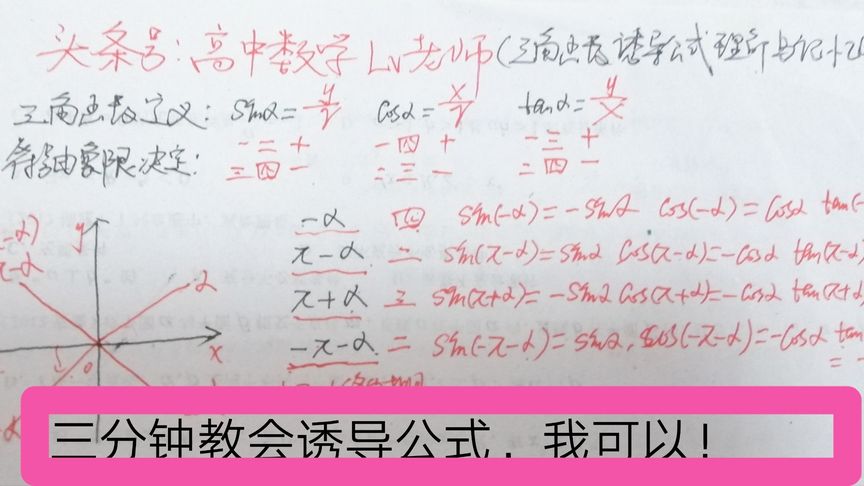 头条号：高中数学Lv老师（三角函数诱导公式理解与记忆
三角函数定义：sinα=y/r cosα=x/r tanα=y/x
符号由象限决定：一二 + 一四 + 一三 +
三四 - 二三 - 二四 -
-α 四 sin(-α)=-sinα cos(-α)=cosα tan(-
π-α 二 sin(π-α)=sinα cos(π-α)=-cosα tan(π-α)
π+α 三 sin(π+α)=-sinα cos(π+α)=-cosα tan(π+α
-π-α 二 sin(-π-α)=sinα, cos(-π-α)=-cosα tan
-α)
π-α
y
α
x
0
三分钟教会诱导公式，我可以！